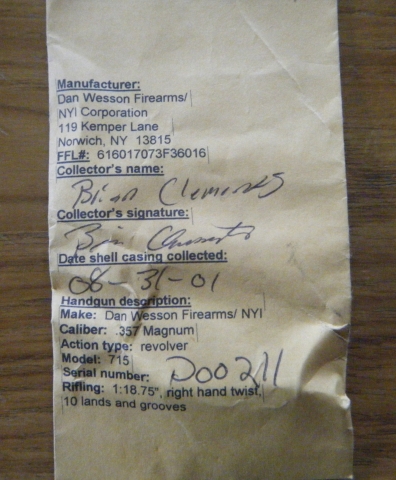 Manufacturer:
Dan Wesson Firearms/
NYI Corporation
119 Kemper Lane
Norwich, NY 13815
FFL#: 616017073F36016
Collector's name:
Brian Clements
Collector's signature:
Date shell casing collected:
08-31-01
Handgun description:
Make: Dan Wesson Firearms/ NYI
Caliber: .357 Magnum
Action type: revolver
Model: 715
Serial number: D00211
Rifling: 1:18.75", right hand twist,
10 lands and grooves